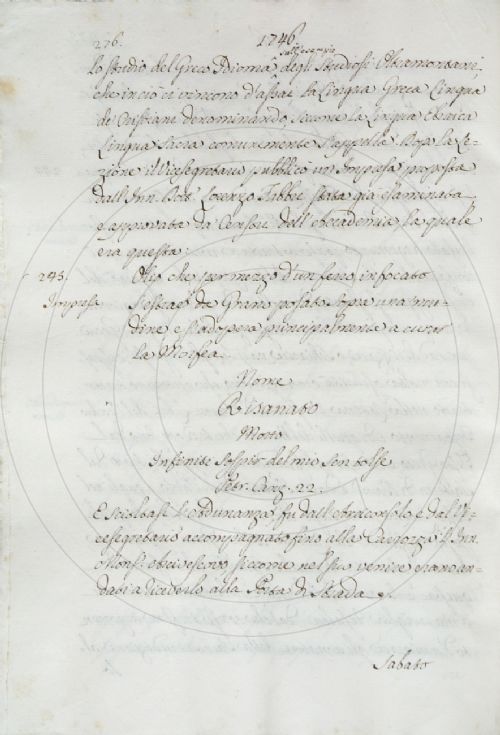 276. 1746.
sull'esempio
lo studio del Greco Idioma degli Studiosi Oltramontani,
che in ciò ci vincono d'assai la Lingua Greca Lingua
de Cristiani denominando siccome la Lingua Ebraica
Lingua Sacra comunemente s'appella. Dopo la Le-
zione il Vicesegretario pubblicò un'Impresa proposta
dall'Inn. Dott. Lorenzo Fabbri stata già esaminata
e approvata da' Censori dell'Accademia la quale
era questa:
293. Olio che per mezzo d'un ferro infocato
Impresa s'estrae de Grano posato sopra una incu-
dine e s'adopera principalmente a curar
la Morfea.
Nome
Risanato
Motto
Infinite Sospir del mio sen tolse
Petr. Canz. 22.
E scioltasi l'Adunanza fu dall'Arciconsolo e dal Vi-
cesegretario accompagnato fino alla Carrozza l'Inn.
Mons. Arcivescovo siccome nel suo venire erano an-
dati a riceverlo alla Porta di Strada
Sabato